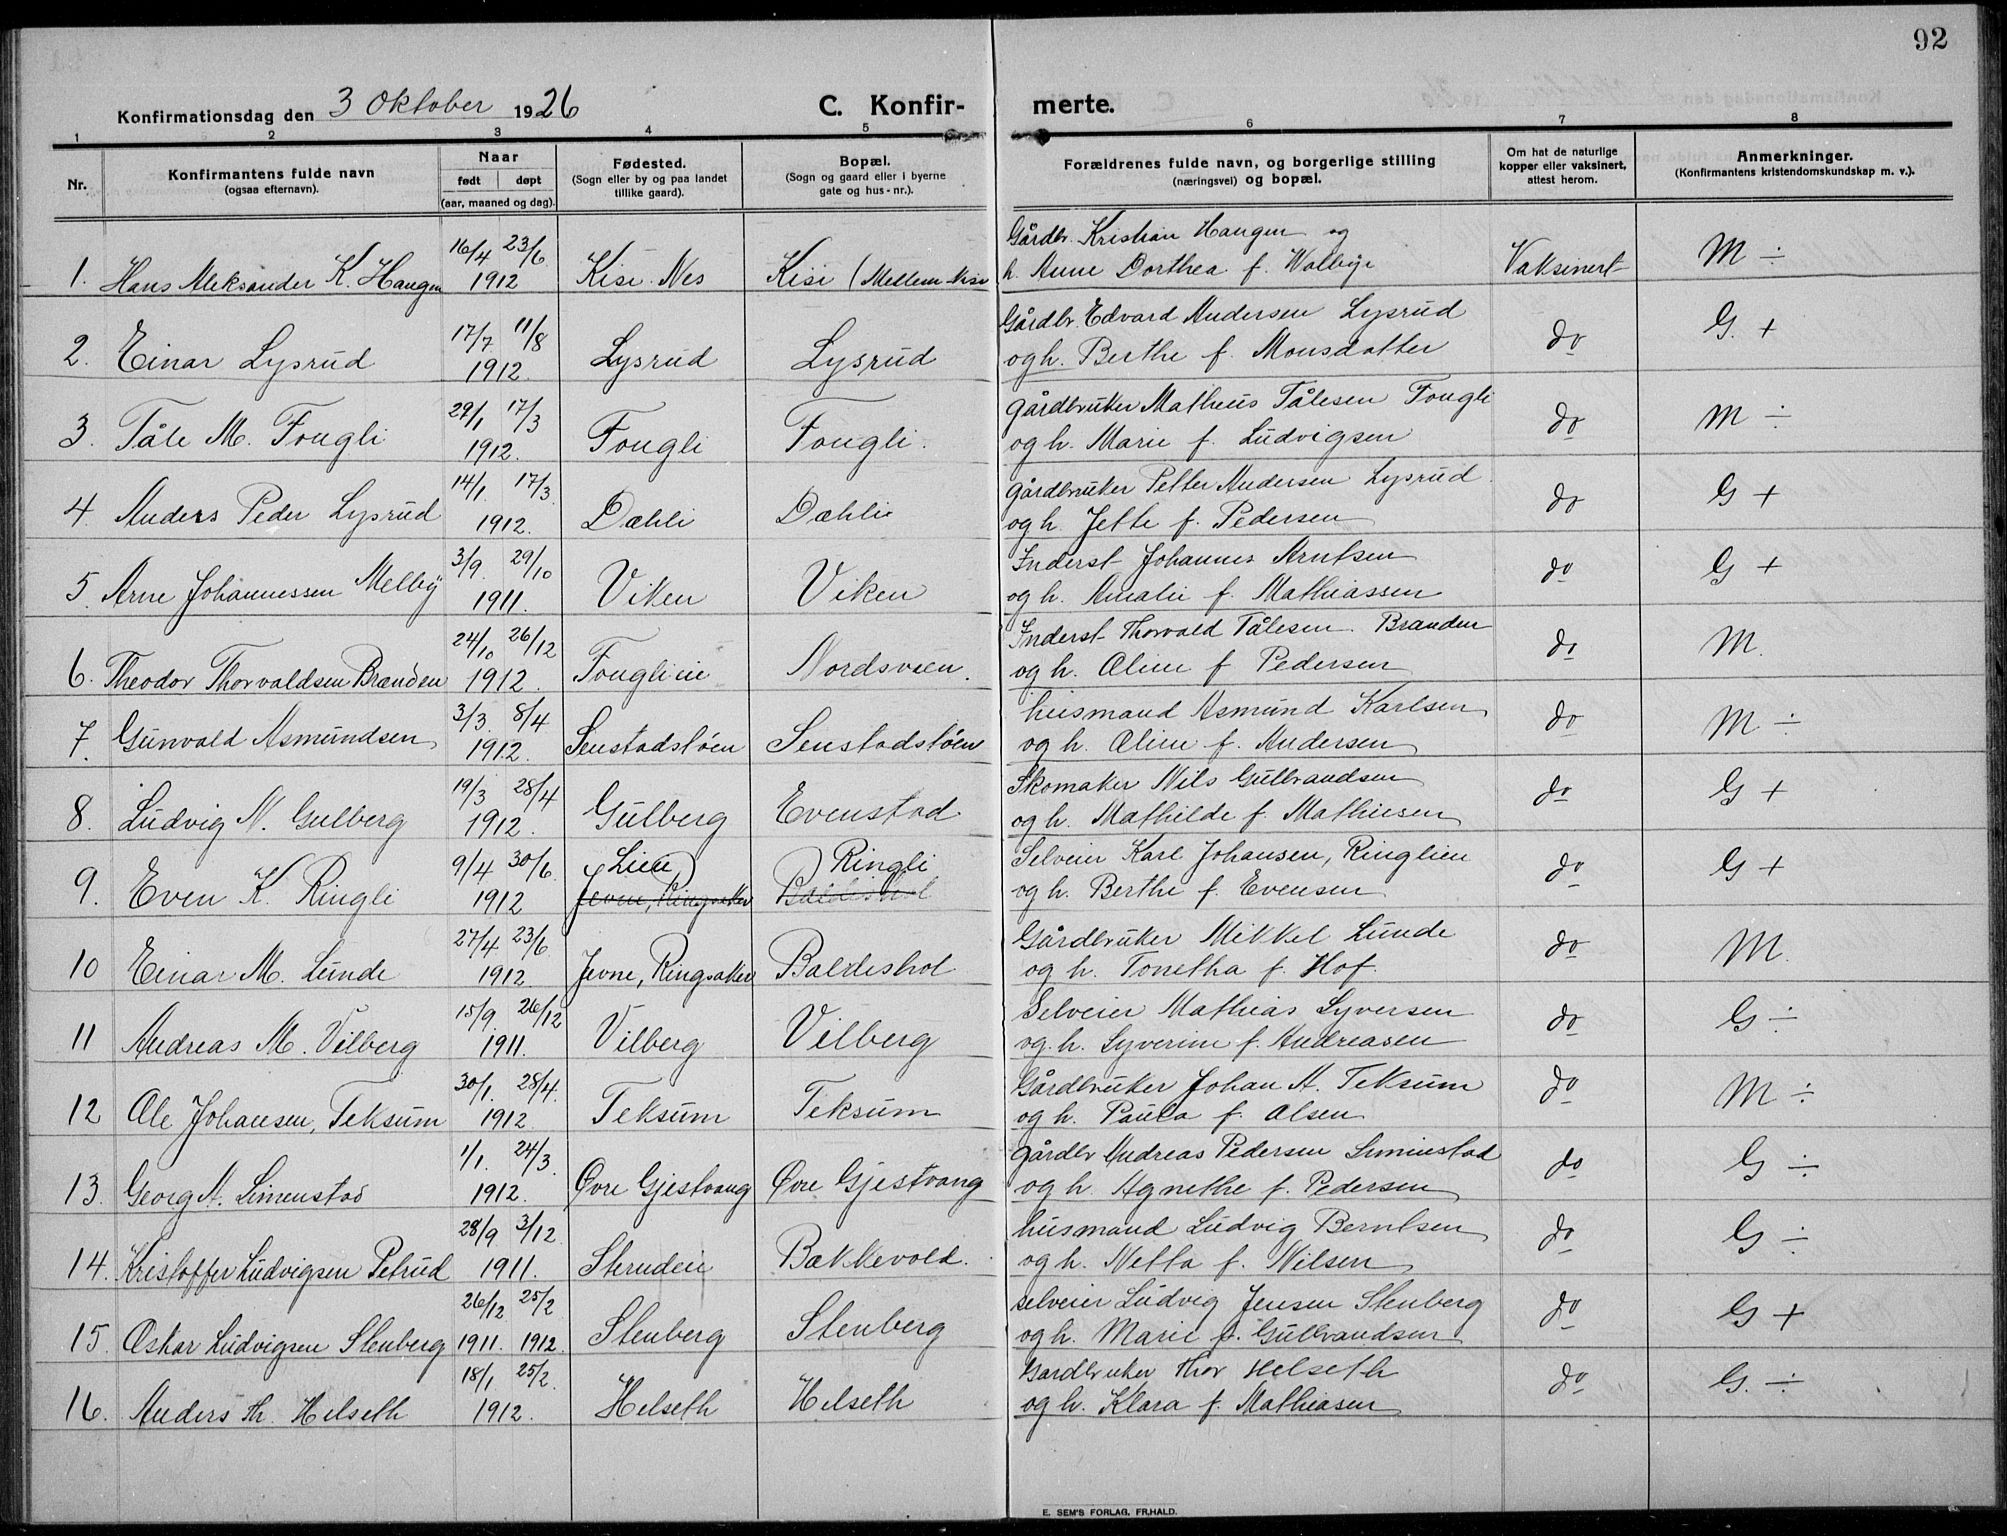 92
Konfirmationsdag den 3 Oktober 1926 C. Konfir- merte.
1 2 3 4 5 6 7 8
Nr. Konfirmantens fulde navn (ogsaa efternavn). Naar født døpt (aar, maaned og dag). Fødested. (Sogn eller by og paa landet tillike gaard). Bopæl. (Sogn og gaard eller i byerne gate og hus-nr.). Forældrenes fulde navn, og borgerlige stilling (næringsvei) og bopæl. Om hat de naturlige kopper eller vaksinert, attest herom. Anmerkninger. (Konfirmantens kristendomskundskap m. v.).
16/4 23/6 Gårdbr. Kristian Haugen og
1. Hans Aleksander K. Haugen 1912 Kise Nes Kise (Mellem Kise h. Anne Dorthea f. Wolbye Vaksinert M ÷
17/7 11/8 Gårdbr. Edvard Andersen Lysrud
2. Einar Lysrud 1912. Lysrud Lysrud og h. Berthe f. Monsdatter do G. +
29/1 17/3 gårdbruker Matheus Tålesen Fougli
3. Tåle M. Fougli 1912. Fougli Fougli. og h. Marie f. Ludvigsen do M ÷
14/1. 17/3. gårdbruker Petter Andersen Lysrud.
4. Anders Peder Lysrud 1912. Dæhli Dæhlie og h. Jette f. Pedersen do G +
3/9. 29/10 Inderst Johannes Arntsen
5. Arne Johannessen Melby 1911. Viken Viken og h. Amalie f. Mathiassen do G +
24/10 26/12 Inderst Thorvald Tålesen Branden
6. Theodor Thorvaldsen Branden 1912. Fouglieie Nordsveen. og h. Oline f Pedersen do M.
3/3. 8/4 husmand Asmund Karlsen
7. Gunvald Asmundsen 1912. Senstadsløen Senstadsløen og h. Oline f. Andersen do M ÷
19/3 28/4 Skomaker Nils Gulbrandsen
8. Ludvig N. Gulberg 1912. Gulberg Evenstad og h. Mathilde f. Mathiesen do G +
9/4 30/6. Lien Ringli Selveier Karl Johansen, Ringlien
9. Even K. Ringli 1912 Jevne, Ringsaker Baldishol og h. Berthe f. Evensen do G +
27/4 23/6 Gårdbruker Mikkel Lunde
10 Einar M. Lunde 1912 Jevne, Ringsaker Baldishol og h. Tonetha f. Hof. do M.
15/9. 26/12 Selveier Mathias Syversen
11 Andreas M. Vilberg 1911. Vilberg Vilberg og. h. Syverine f. Andreasen do G ÷
30/1. 28/4. Gårdbruker Johan A. Teksum
12 Ole Johansen, Teksum 1912. Teksum Teksum og h. Paula f. Olsen do M ÷
1/1. 24/3. gårdbr Andreas Pedersen Simenstad
13. Georg A. Simenstad 1912. Øvre Gjestvang Øvre Gjestvang og h. Agnethe f. Pedersen do G ÷
28/9 3/12. husmand Ludvig Berntsen
14. Kristoffer Ludvigsen Petrud 1911. Bækkevold. og h. Netta f. Nilsen do G ÷
26/12 25/2 selveier Ludvig Jensen Stenberg
15. Oskar Ludvigsen Stenberg 1911. 1912. Stenberg Stenberg og h. Marie f. Gulbrandsen do G +
18/1 25/2. Gardbruker Thor Helseth
16. Anders Th. Helseth 1912. Helseth Helseth og h. Klara f. Mathiasen do G. ÷
E. SEM'S FORLAG, FR.HALD.